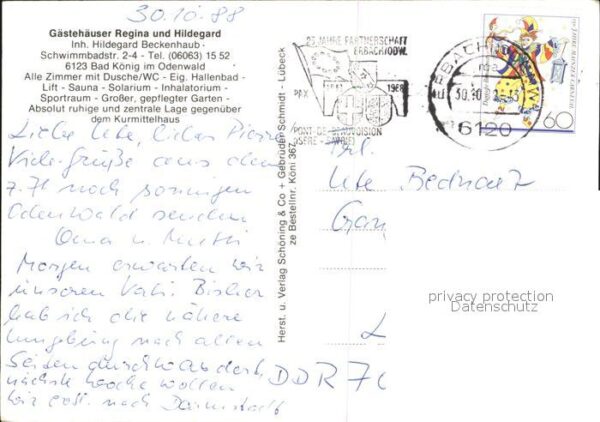 30.10.88
Gästehäuser Regina und Hildegard
Inh. Hildegard Beckenhaub ·
Schwimmbadstr. 2-4 - Tel. (06063) 15 52
6123 Bad König im Odenwald
Alle Zimmer mit Dusche/WC - Eig. Hallenbad -
Lift - Sauna - Solarium - Inhalatorium -
Sportraum - Großer, gepflegter Garten -
Absolut ruhige und zentrale Lage gegenüber
dem Kurmittelhaus
Liebe Ute, lieber
Viele Grüße aus dem
z. Zt noch sonnigen
Odenwald senden
Oma u. Mutti
Morgen erwarten wir
unseren Vati. Bisher
hab ich die nähere
Umgebung nach allen
Seiten durchwandert
nächste Woche wollen
wir evtl. nach Darmstadt
Herst. u. Verlag Schöning & Co + Gebrüder Schmidt - Lübeck
ze Bestellnr. Köni 367
25 JAHRE PARTNERSCHAFT
ERBACH/ODW.
PAX
1988
PONT-DE-BEAUVOISIN
6120
60
Ute Bednarz
DDR 70
privacy protection
Datenschutz